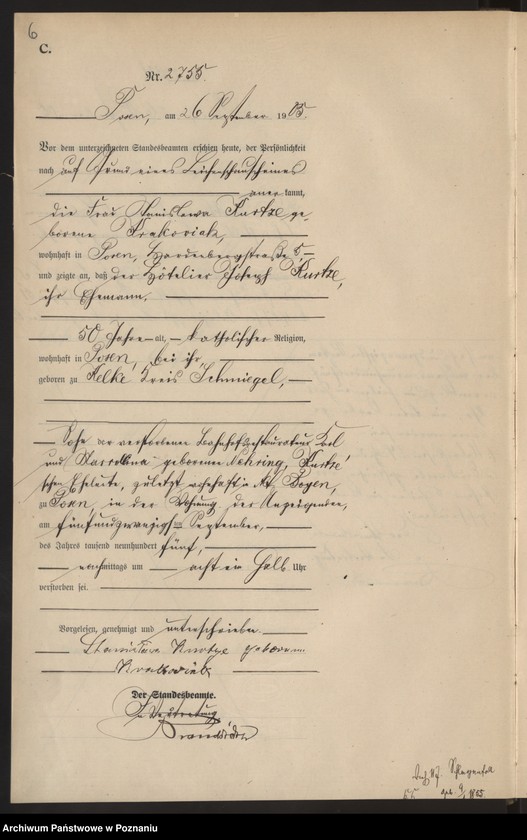 6
C.
Nr. 2755
Posen, am 26 September 1905.
Vor dem unterzeichneten Standesbeamten erschien heute, der Persönlichkeit
nach auf Grund eines Leichenschauscheines
anerkannt,
die Frau Stanislawa Kurtze ge-
borene Krakowiak,
wohnhaft in Posen, Hardenbergstraße 5,
und zeigte an, daß der Hôtelier Joseph Kurtze,
ihr Ehemann,
50 Jahre alt, katholischer Religion,
wohnhaft in Posen, bei ihr,
geboren zu Kreis Schmiegel,
Sohn der verstorbenen Bahnhofsrestaurateur
und geborenen Nehring, Kurtze'
schen Eheleute, zuletzt wohaft in Alt Boyen,
zu Posen, in der Wohnung der Anzeigenden,
am fünfundzwanzigsten September,
des Jahres tausend neunhundert fünf,
nachmittags um acht ein halb Uhr
verstorben sei.
Vorgelesen, genehmigt und unterschrieben.
Stanislawa Kurtze geborene
Krakowiak
Der Standesbeamte.
In Vertretung
Archiwum Państwowe w Poznaniu